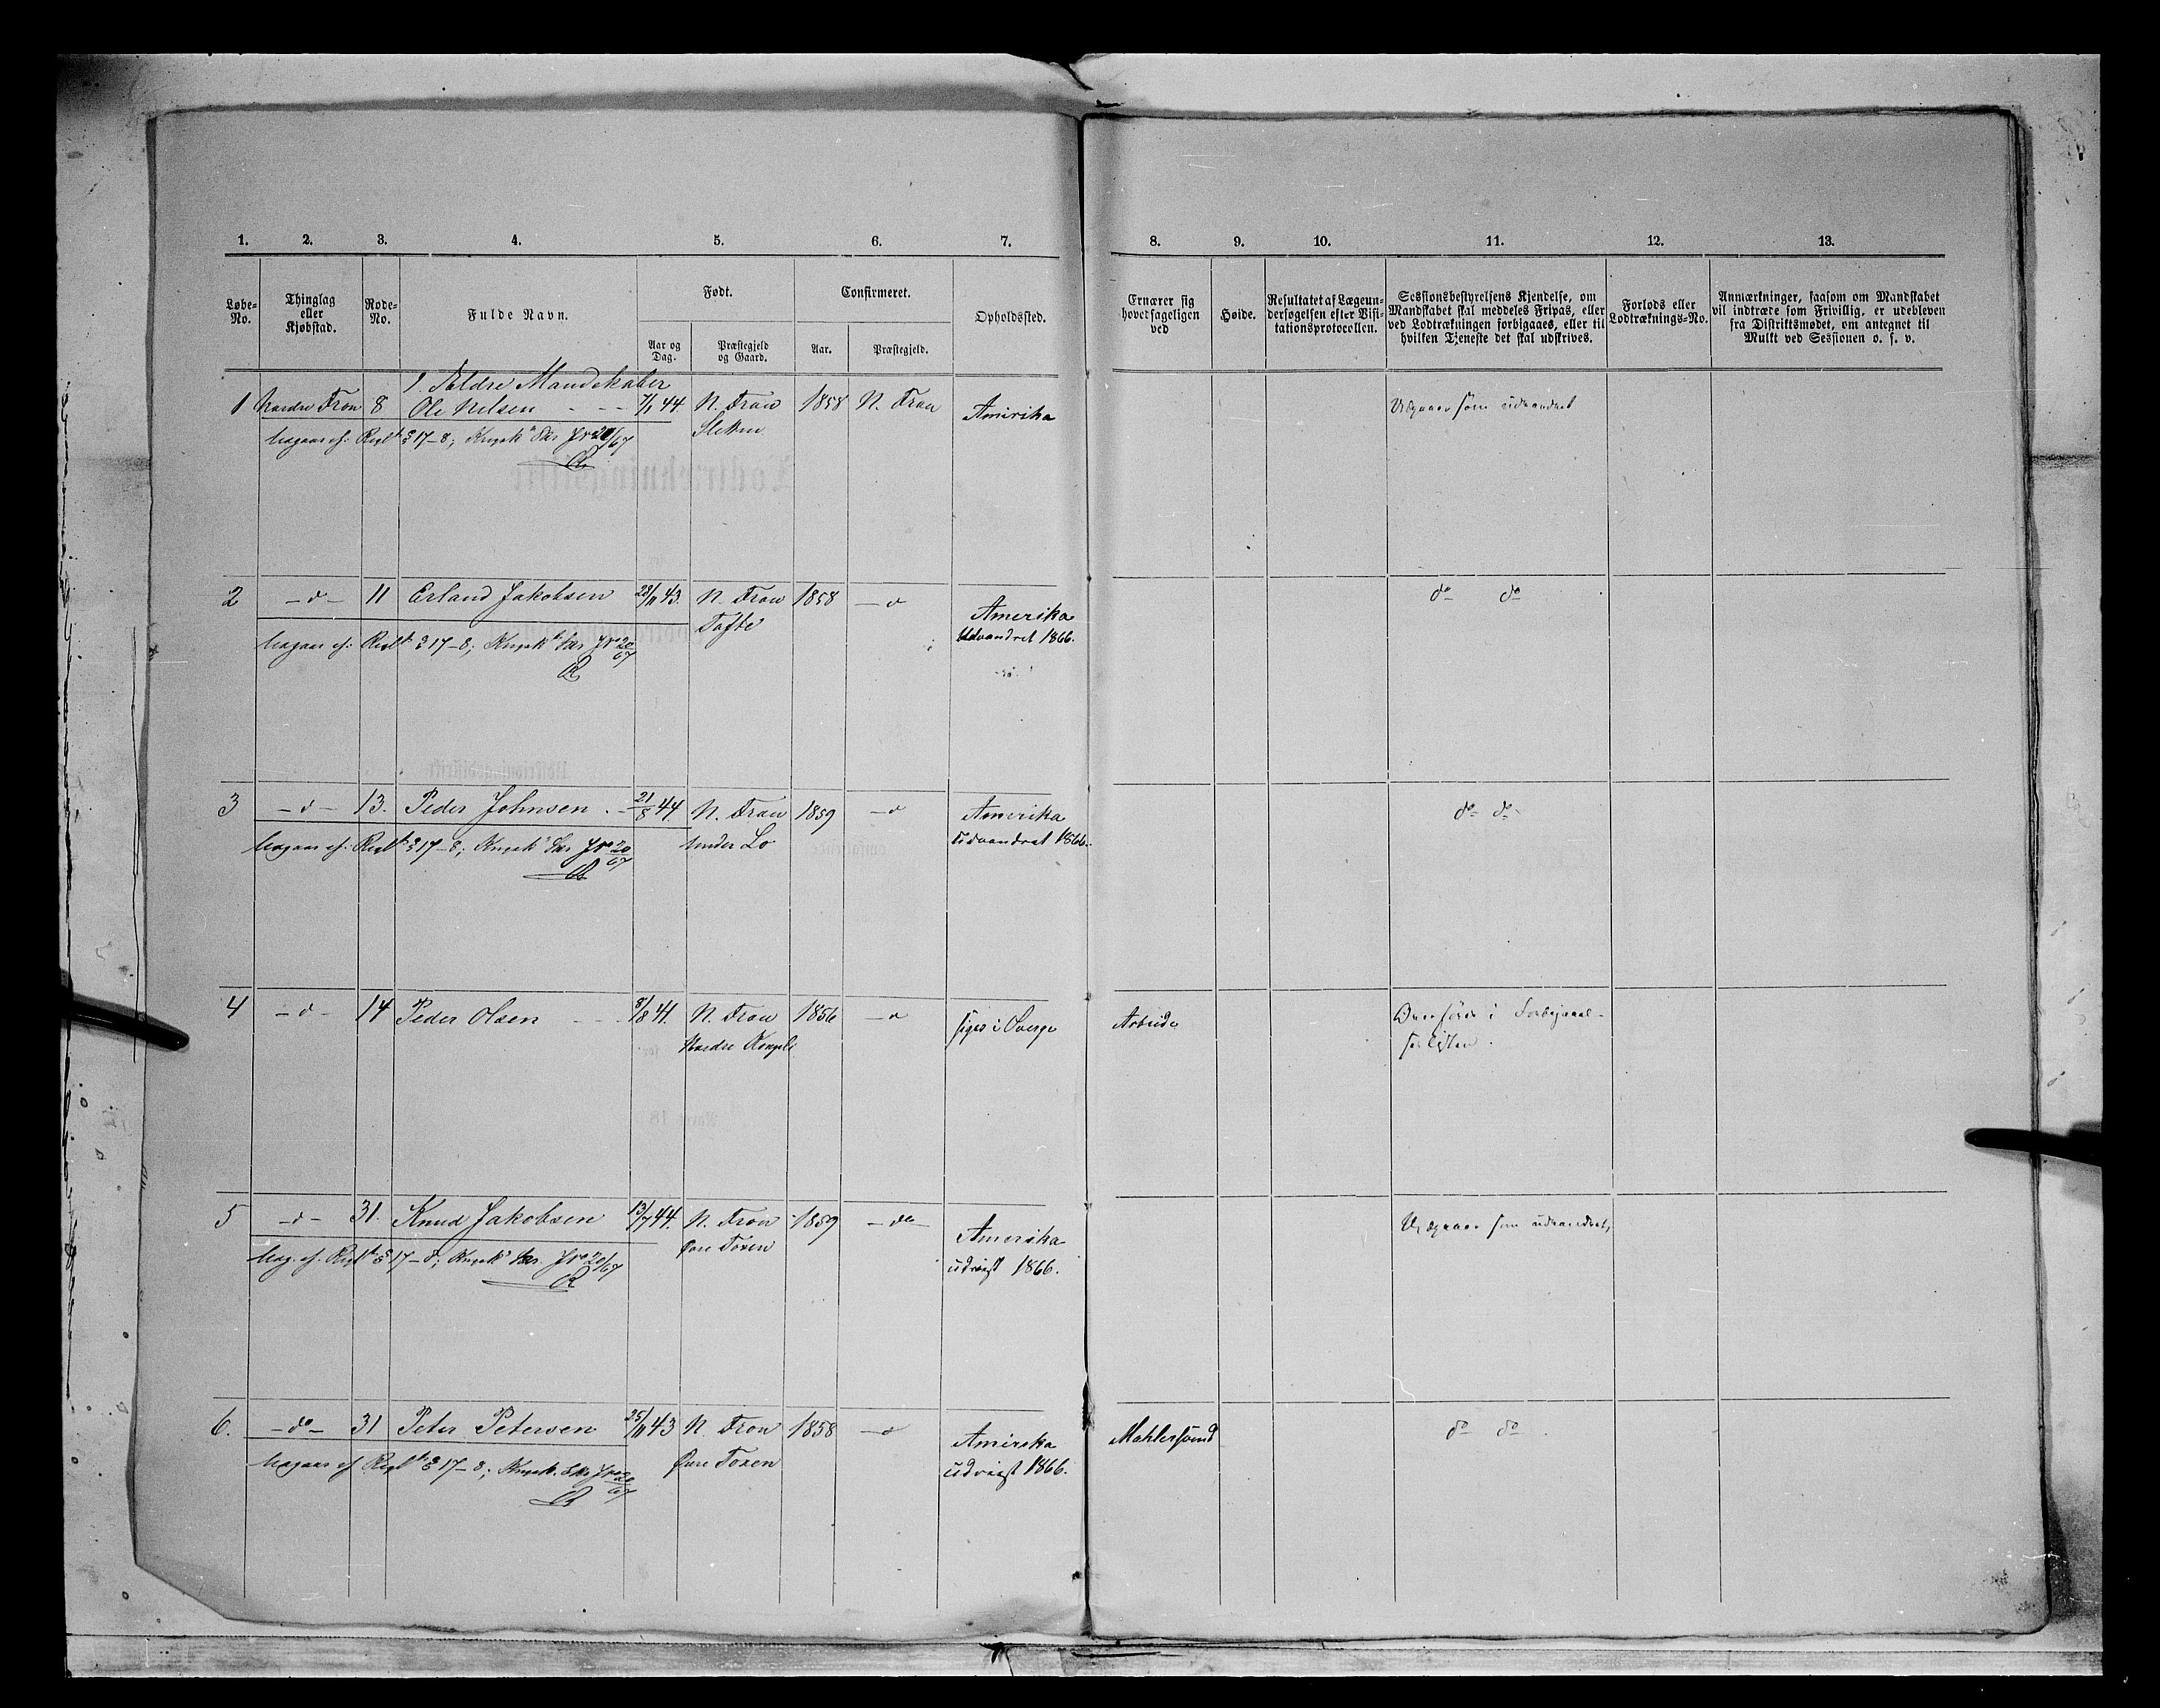 1. 2. 3. 4. 5. 6. 7. 8. 9. 10. 11. 12. 13.
Løbe-No.
Thinglag eller Kjøbstad.
Rode-No.
Fulde Navn.
Født.
Aar og Dag.
Præstegjeld og Gaard.
Confirmeret.
Aar.
Præstegjeld.
Opholdssted.
Ernærer sig hovedsageligen ved
Høide.
Resultatet af Lægeundersøgelsen efter Visitationsprotocollen.
Sessionsbestyrelsens Kjendelse, om Mandskabet skal meddeles Fripas, eller ved Lodtrækningen forbigaaes, eller til hvilken Tjeneste det skal udskrives.
Forlods eller Lodtræknings-No.
Anmærkninger, saasom om Mandskabet vil indtræde som Frivillig, er udebleven fra Distriktsmødet, om antegnet til Mulkt ved Sessionen o. s. v.
1. Ældre Mandskaber
1 Nordre Fron 8 Ole Nilsen - - - 7/1 44. N. Fron 1858 N. Fron Amerika Udgaar som udvandret
Sletten
§ 17-8; 20/67
2 -d- 11 Erland Jakobsen 28/11 43. N. Fron 1858 -d Amerika do do
Tofte Udvandret 1866.
§ 17-8; 20/67
3 -d- 13. Peder Johnsen 21/8 44. N. Fron 1859 -d Amerika do do
under Lo udvandret 1866.
§ 17-8; 20/67
4 -d- 14 Peder Olsen - - - 8/8 41. N. Fron 1856 -d siges i Sverge Arbeide Overføres i
Nordre
5 -d- 31. Knud Jakobsen 13/7 44. N. Fron 1859 -do- Amerika Udgaar som udvandret,
Øvre Foxen udreist 1866.
§ 17-8; 20/67
6. -do- 31 Peter Petersen 25/11 43 N. Fron 1858 -d Amerika Mahlersvend do do
Øvre Foxen udreist 1866.
§ 17-8; 20/67